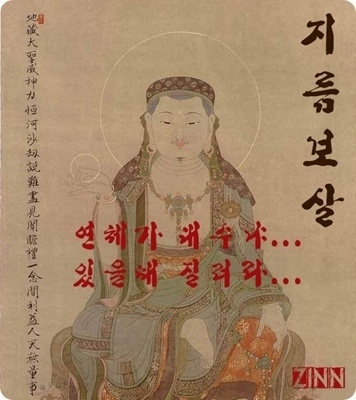 지름보살
地藏大聖威神力恒河沙劫說難盡見聞瞻禮一念間利益人天無量事
연체가 대수냐...
있을때 질러라...
ZINN